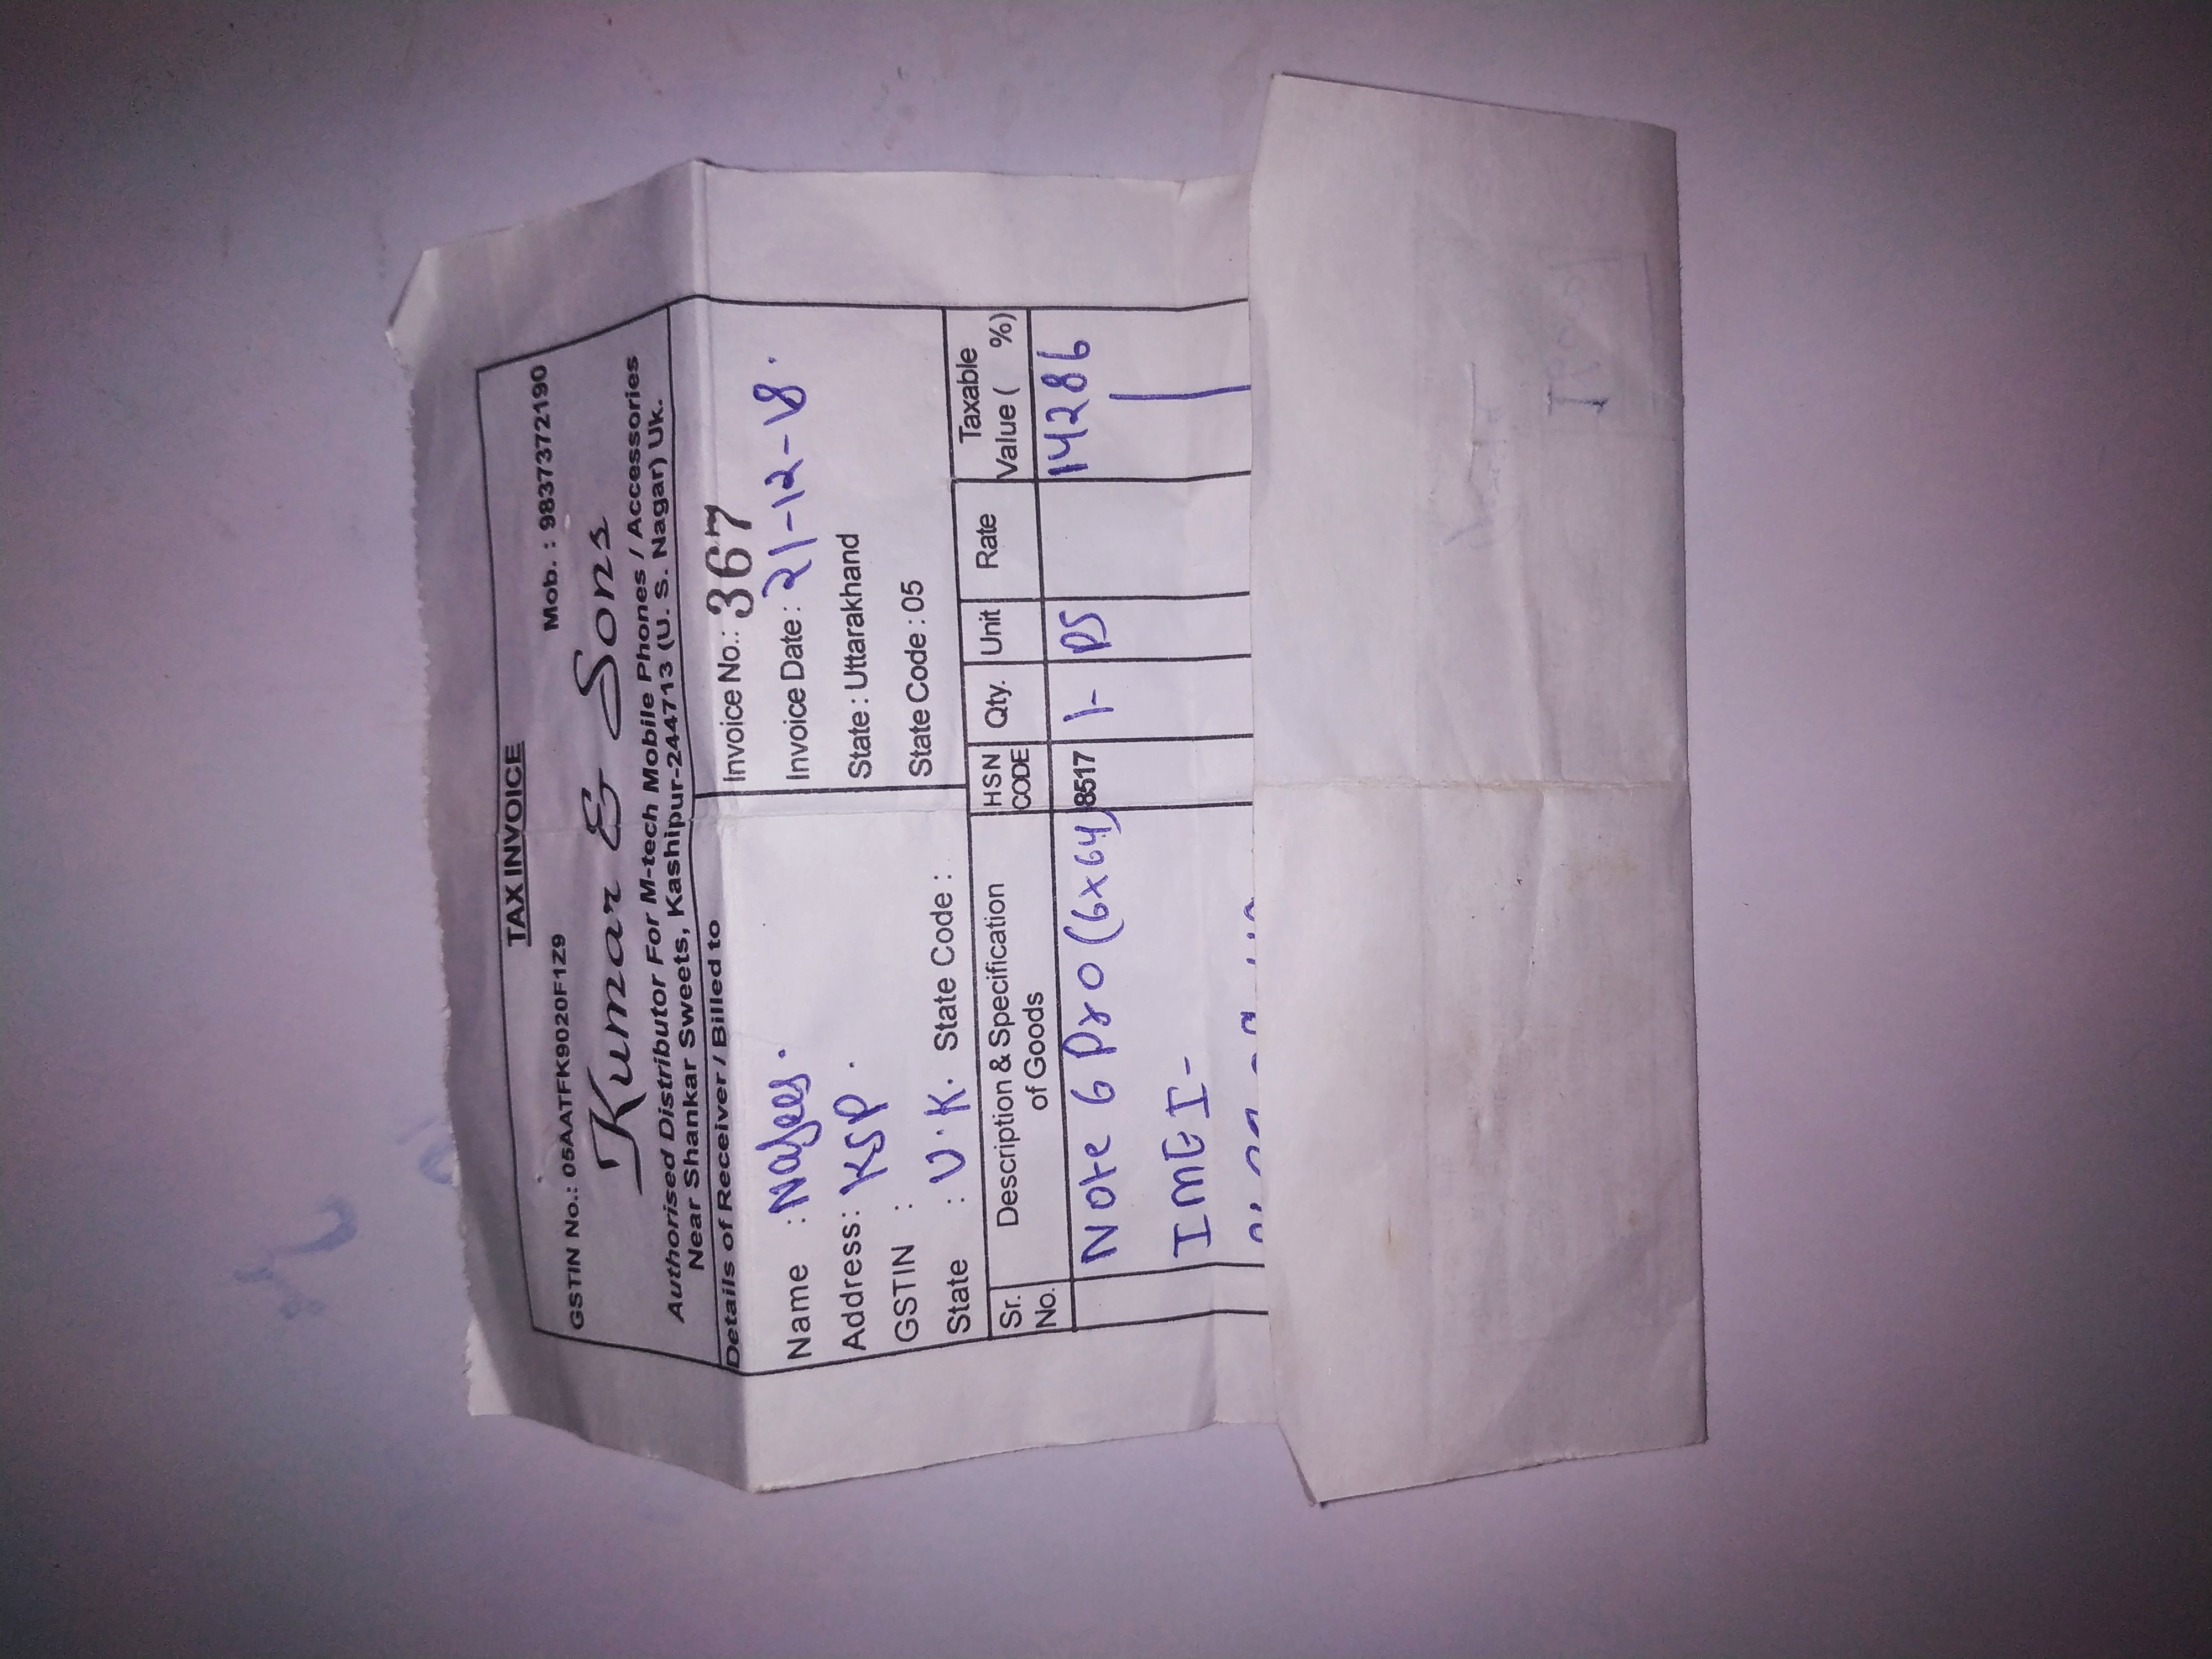 TAX INVOICE
GSTIN No.: 05AATFK9020F1Z9 Mob. : 9837372190
Kumar & Sons
Authorised Distributor For M-tech Mobile Phones / Accessories
Near Shankar Sweets, Kashipur-244713 (U. S. Nagar) Uk.
Details of Receiver / Billed to
Name :
Address: KSP.
GSTIN :
State : U.K. State Code :
Invoice No.: 367
Invoice Date : 21-12-18.
State : Uttarakhand
State Code : 05
Sr. No. Description & Specification of Goods HSN CODE Qty. Unit Rate Taxable Value ( %)
Note 6 Pro (6x64) 8517 1- PS 14286
IMEI-